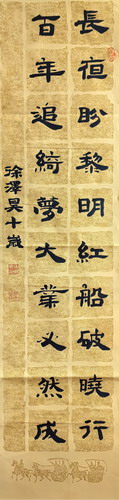 長夜盼黎明紅船破曉行
百年追綺夢大業必然成
徐澤昊十歲